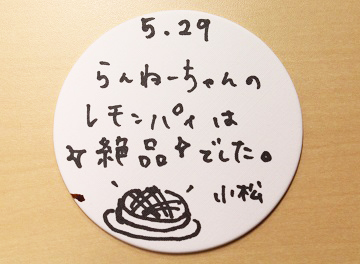 5.29
らんねーちゃんの
レモンパイは
☆絶品☆でした。
小松